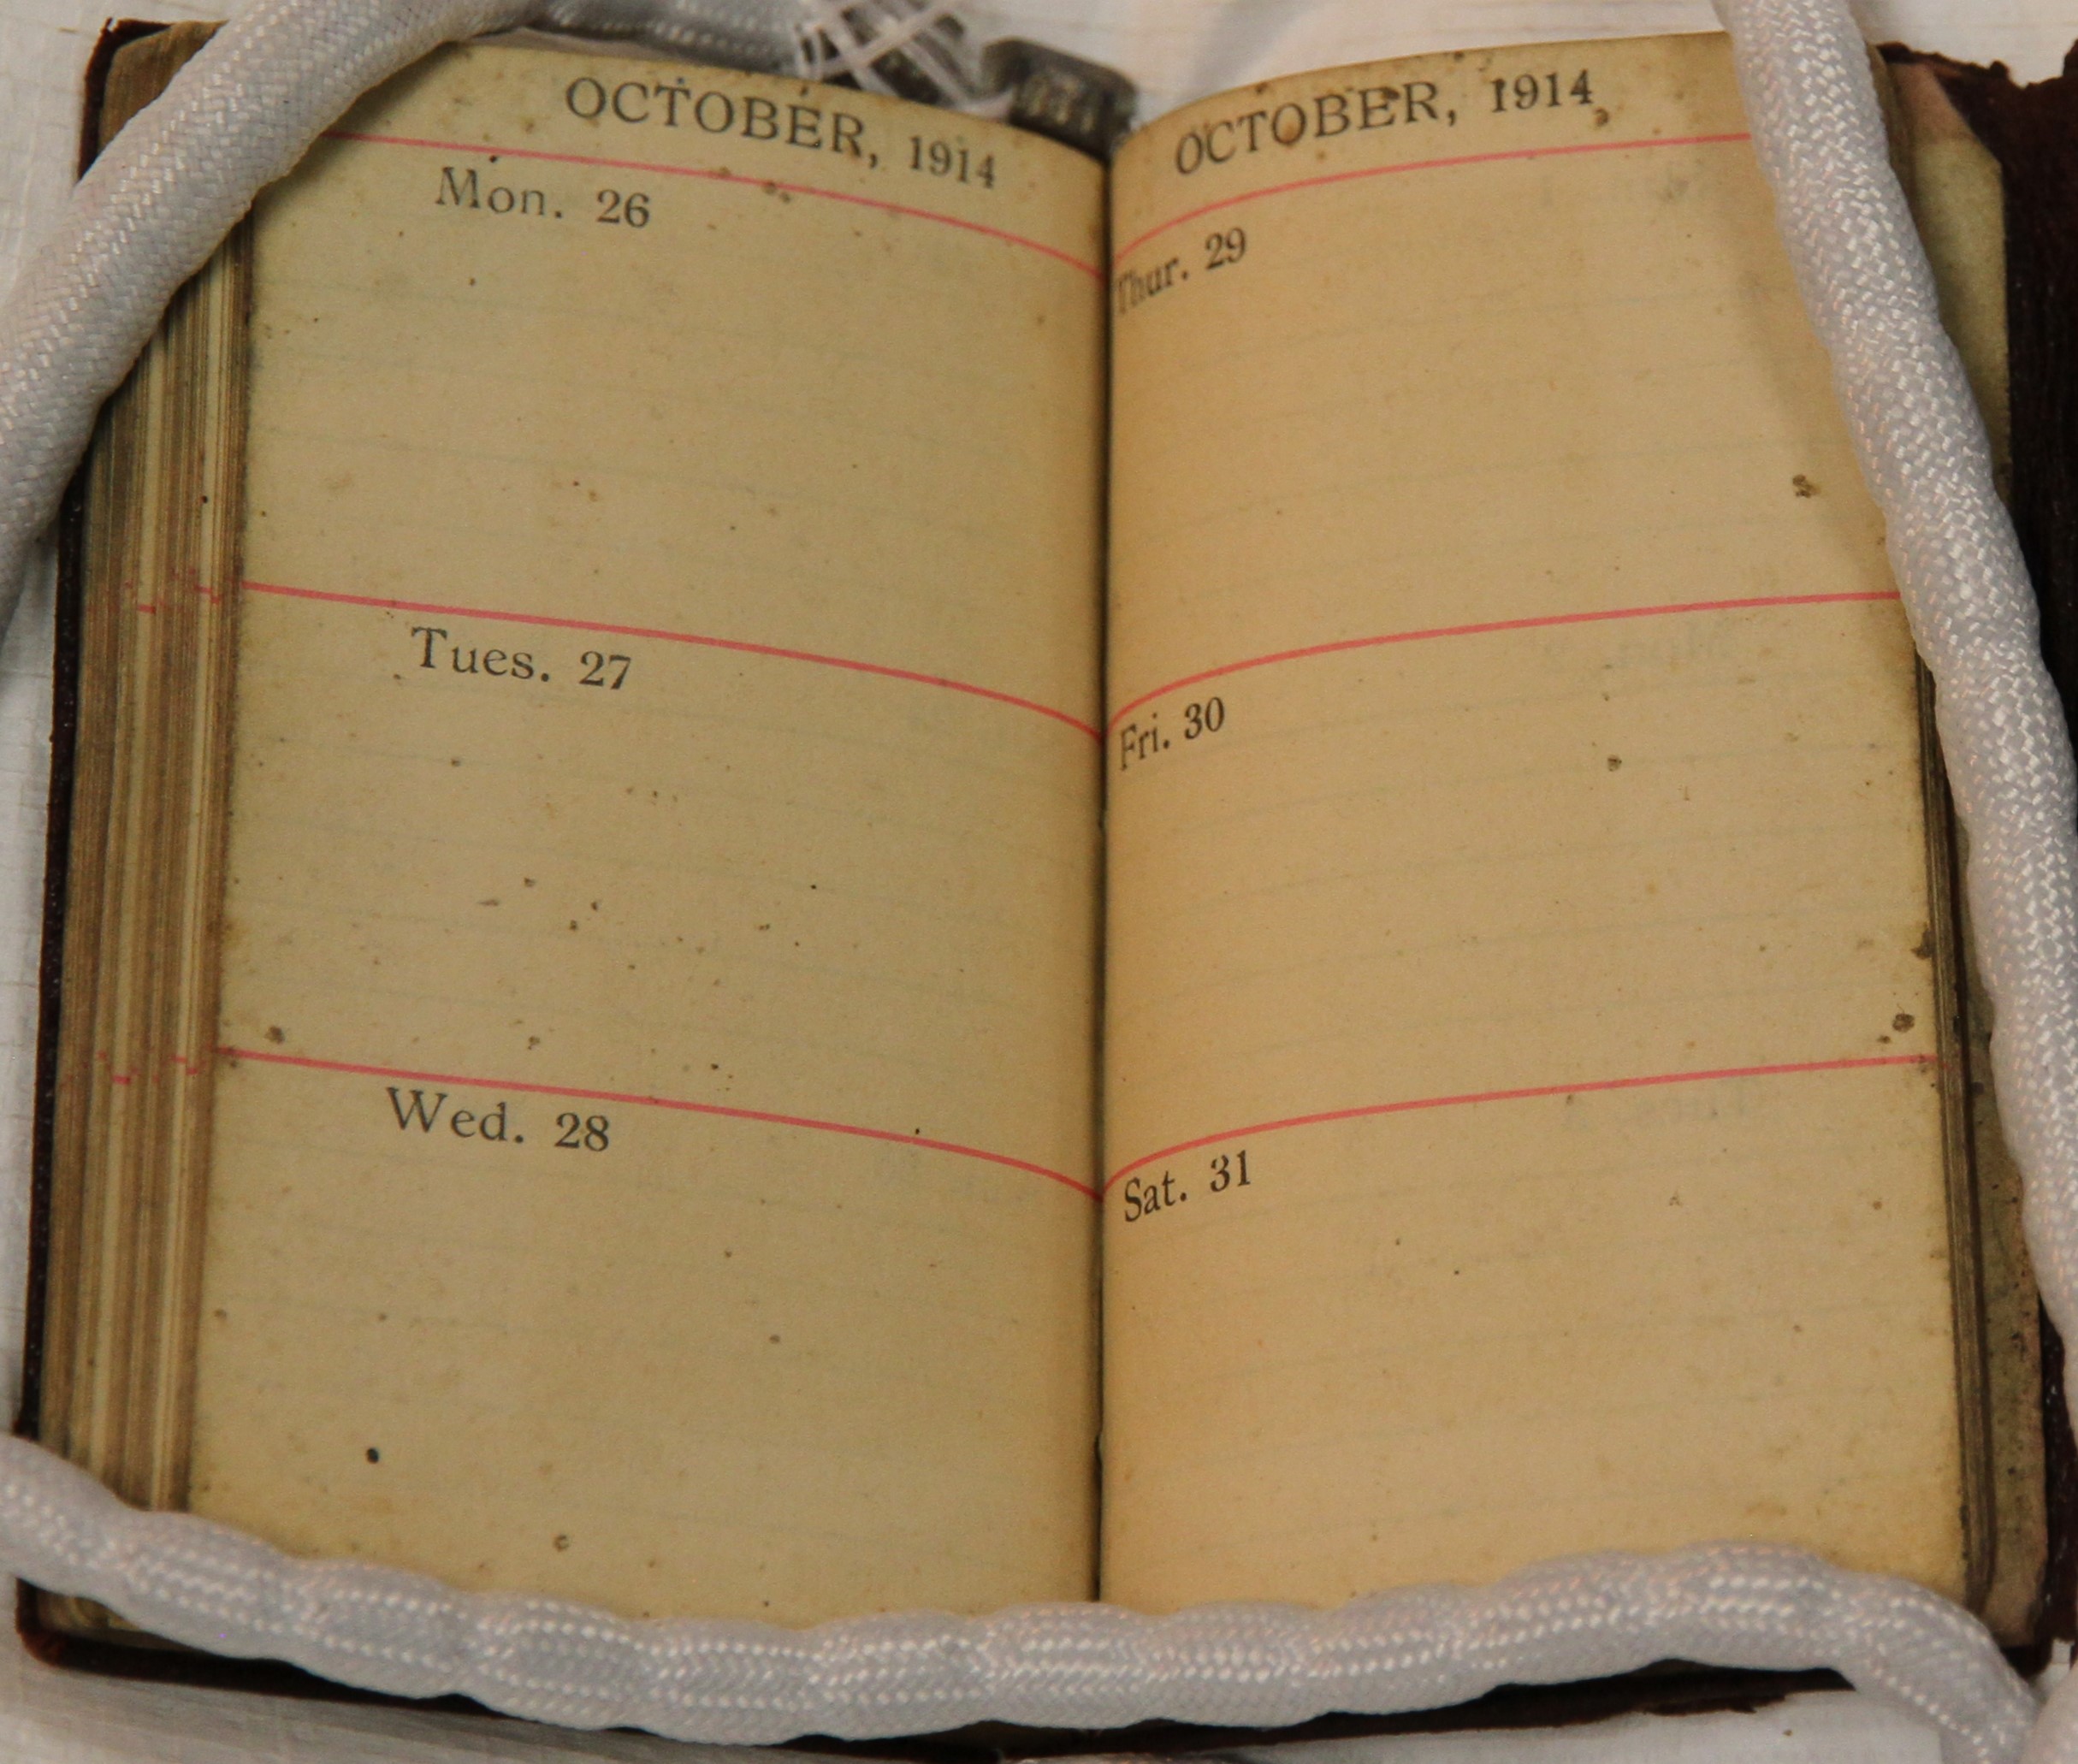 OCTOBER, 1914
Mon. 26
Tues. 27
Wed. 28
OCTOBER, 1914
Thur. 29
Fri. 30
Sat. 31